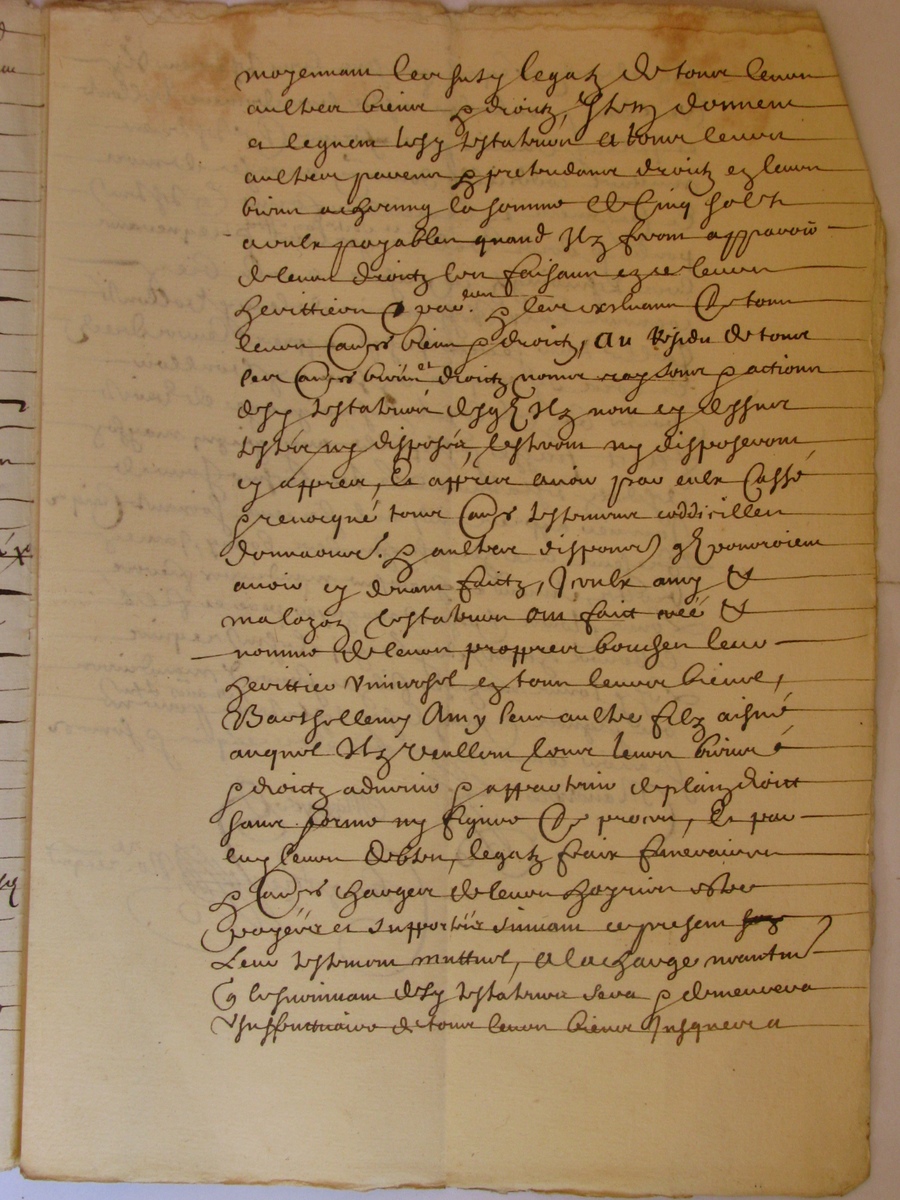 moyennant lesd. legatz de tous leurs
aultres biens & droictz, Item donnent
et leguent lesd. testateurs a tous leurs
aultres parens & pretendans droictz ez leurs
biens a chascung la somme de cinq solz
a eulx payables quand ilz feront apparoir
de leurs droictz les faisant ez ce leurs
herittiers & par. & les excluant de tous
leurs biens & droictz, au Residu de tous
les biens et droictz noms raysons & actions
desd. testateurs desq. ilz nont cy dessus
testés ny disposés, testeront ny disposeront
cy appres, Et appres avoir par eulx Cassé
& revocqué tous testemens coddicilles
donnaons. & aultres dispons q. pouroient
avoir cy devant faictz, Iceulx amy &
testateurs ont faict creé &
nommé de leurs proppres bouches leur
herittier universel ez tous leurs biens,
Barthellemy Amy leur aultre filz aisné
auquel Ilz veullent tous leurs biens
& droictz advenir & appartenir de plain droict
sans forme ny figure de proces, Et par
luy leurs debtes, legatz fraix funeraires
& charges de leurs hoyries estre
payées et supportés suivant ce present
Leur testement muttuel, a la charge neantm.
q. le survivant desd. testateurs sera & demeurera
Usuffructuaire de tous leurs biens Jusques a